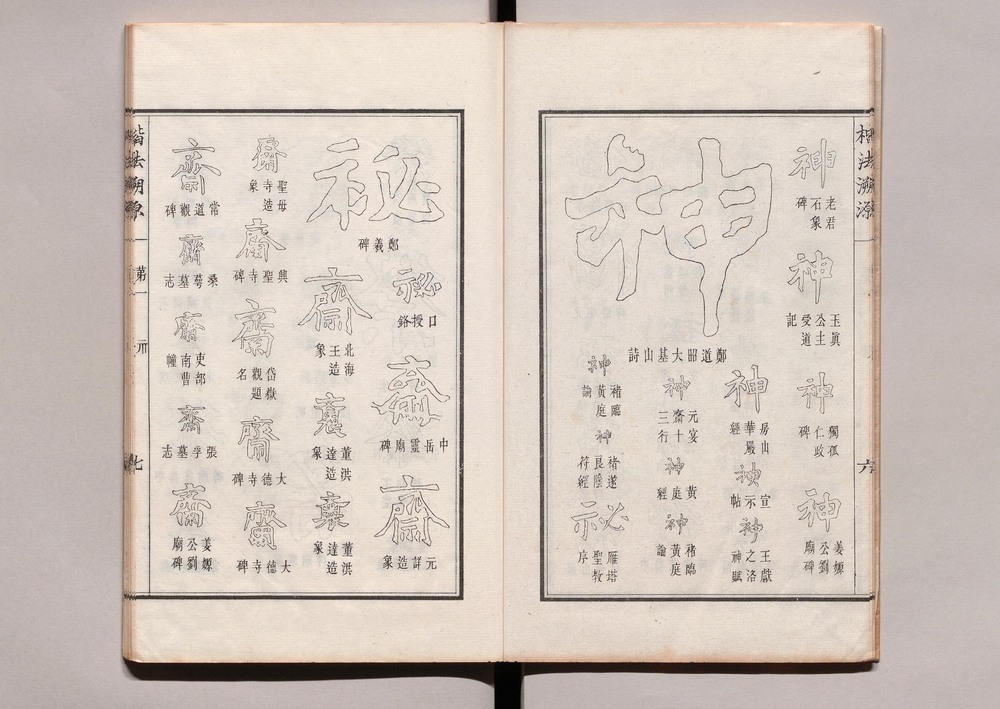 楷法溯源
六
神
老君石象碑
神
玉眞公主受道記
神
獨孤仁政碑
神
姜嫄公劉廟碑
神
鄭道昭大基山詩
神
房山華嚴經
神
宣示帖
神
王獻之洛神賦
神
元宴齋十三行
神
黃庭經
神
褚臨黃庭論
神
褚臨黃庭論
神
褚遂良陰符經
祕
雁塔聖教序
祕
鄭羲碑
祕
口授銘
齋
中岳靈廟碑
齋
元詳造象
齋
北海王造象
齋
董洪達造象
齋
董洪達造象
齋
聖母寺造象
齋
興聖寺碑
齋
岱嶽觀題名
齋
大德寺碑
齋
大德寺碑
齋
常道觀碑
齋
桑萼墓志
齋
吏部南曹幢
齋
張孚墓志
齋
姜嫄公劉廟碑
楷法溯源
第一
示
七